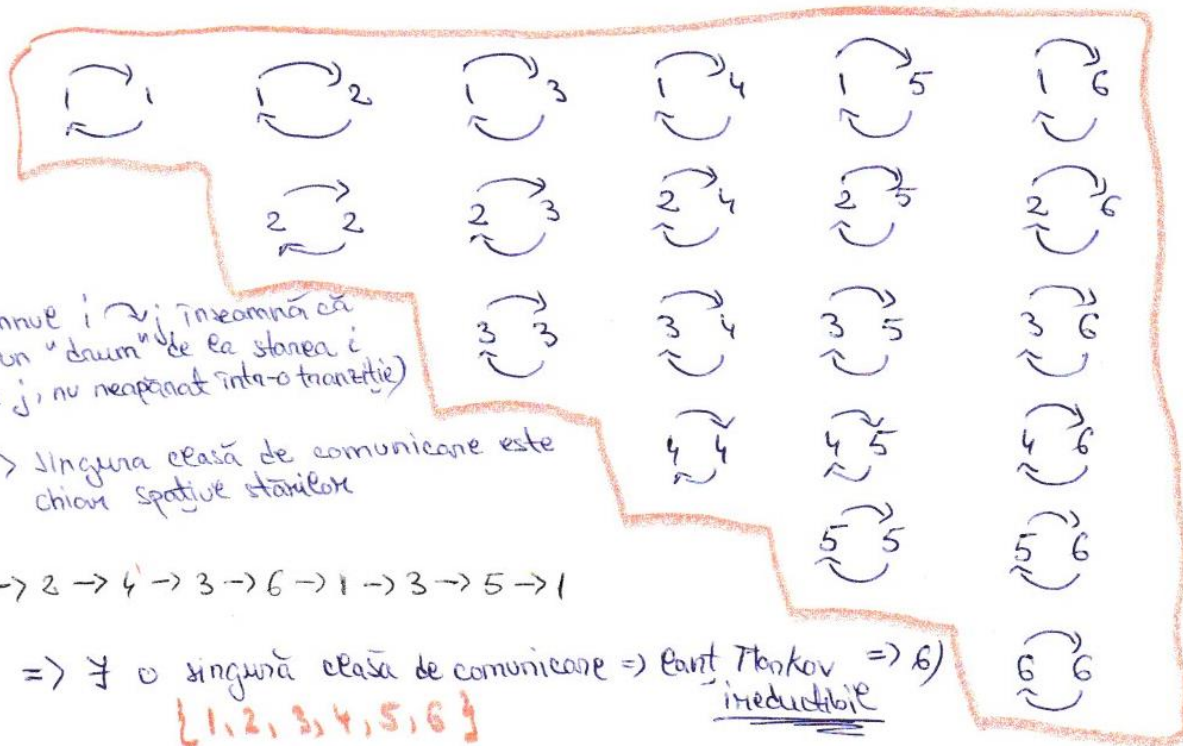 1 1 1 2 1 3 1 4 1 5 1 6
2 2 2 3 2 4 2 5 2 6
3 3 3 4 3 5 3 6
i j înseamnă că
un "drum" de la starea i
j, nu neapărat într-o tranziție)
4 4 4 5 4 6
singura clasă de comunicare este
chiar spațiul stărilor
5 5 5 6
→ 2 → 4 → 3 → 6 → 1 → 3 → 5 → 1
=> ∃ o singură clasă de comunicare => lanț Markov => 6)
ireductibil
{1, 2, 3, 4, 5, 6}
6 6